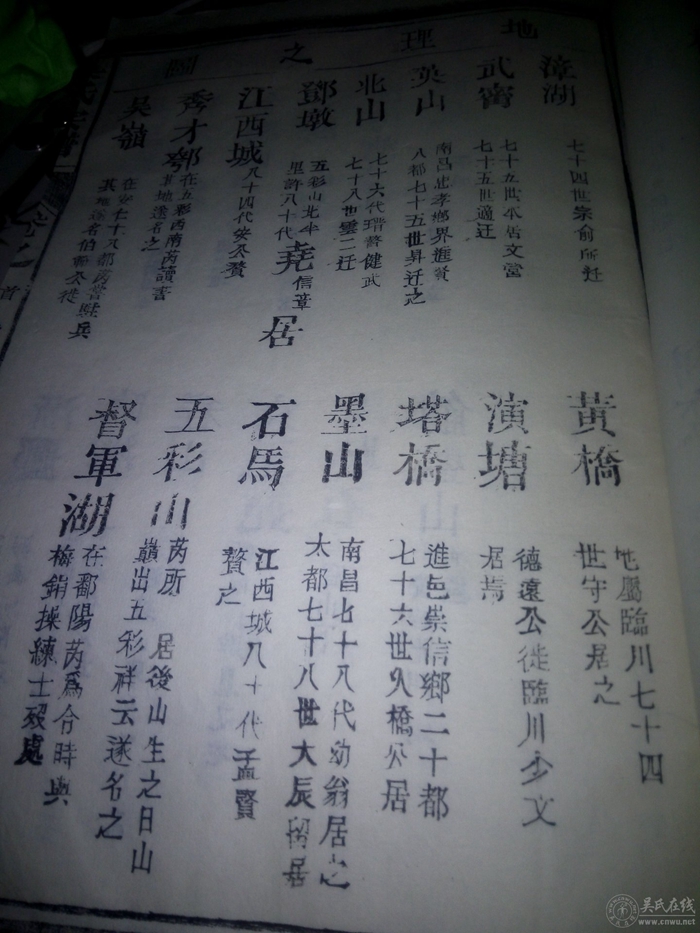 地理之圖
漳湖
七十四世崇俞所迁
武寗
七十五世承居文當
七十五世適迁
英山
南昌忠孝鄉界進賢
八都七十五世昇迁之
北山
七十六代瑨菩健武
七十八世雲二迁
鄧墩
五彩山北半
里許八十代
堯居
信章
江西城
八十四代安公贅
秀才鄂
在五彩西南芮讀書
其地遂名之
吳嶺
在安仁十八都芮普駐兵
其地遂名伯 公徙
黃橋
地屬臨川七十四
世守公居之
演塘
德遠公徙臨川少文
居焉
塔橋
進邑崇信鄉二十都
七十六世久橋公居
墨山
南昌七十八代幼翁居之
太都七十八世大辰 居
石馬
江西城八十代孟賢
贅之
五彩山
芮所居後山生之日山
巔出五彩祥云遂名之
督軍湖
在鄱陽芮爲令時與
梅鋗操練士 處
吳氏在線
www.cnwu.net